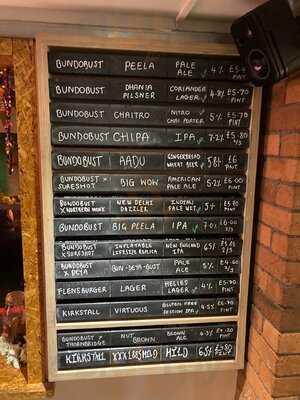 BUNDOBUST PEELA PALE ALE 4% PINT
BUNDOBUST DHANIA PILSNER CORIANDER LAGER 4.8% £5.70 PINT
BUNDOBUST CHAITRO NITRO CHAI PORTER 5% £5.70 PINT
BUNDOBUST CHIPA IPA 7.2% £5.80 2/3
BUNDOBUST AADU GINGERBREAD WHEAT BEER 5.8% £6 PINT
BUNDOBUST X SURESHOT BIG WOW AMERICAN PALE ALE 5.2% £6.00 PINT
BUNDOBUST X NORTHERN MONK NEW DELHI DAZZLER INDIAN PALE 5% £5.70 PINT
BUNDOBUST BIG PEELA IPA 7.0% £6.00
BUNDOBUST X SURESHOT LIFESIZE REPLICA NEW ENGLAND IPA 6.5%
BUNDOBUST X DEYA BUN-DEYA-BUST PALE ALE 5% £4.60 2/3
FLENSBURGER LAGER HELLES LAGER £6.70 PINT
KIRKSTALL VIRTUOUS GLUTEN FREE SESSION IPA 4.5% £5.70 PINT
BUNDOBUST X THORNBRIDGE NUT BROWN BROWN ALE PINT
KIRKSTALL MILD 6.5%